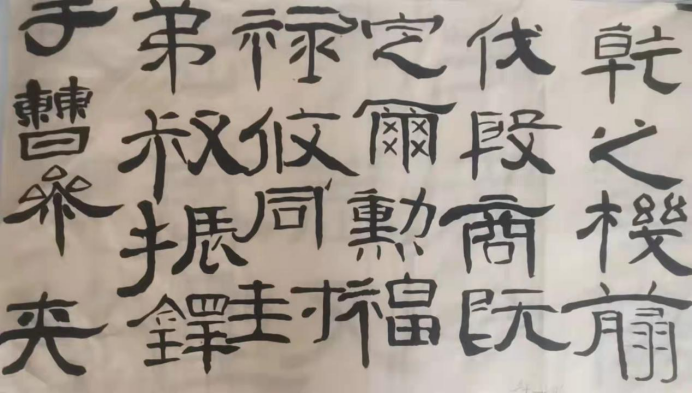 乾之機翦
伐殷商既
定爾勳福
禄攸同封
弟叔振鐸
于曹參夾